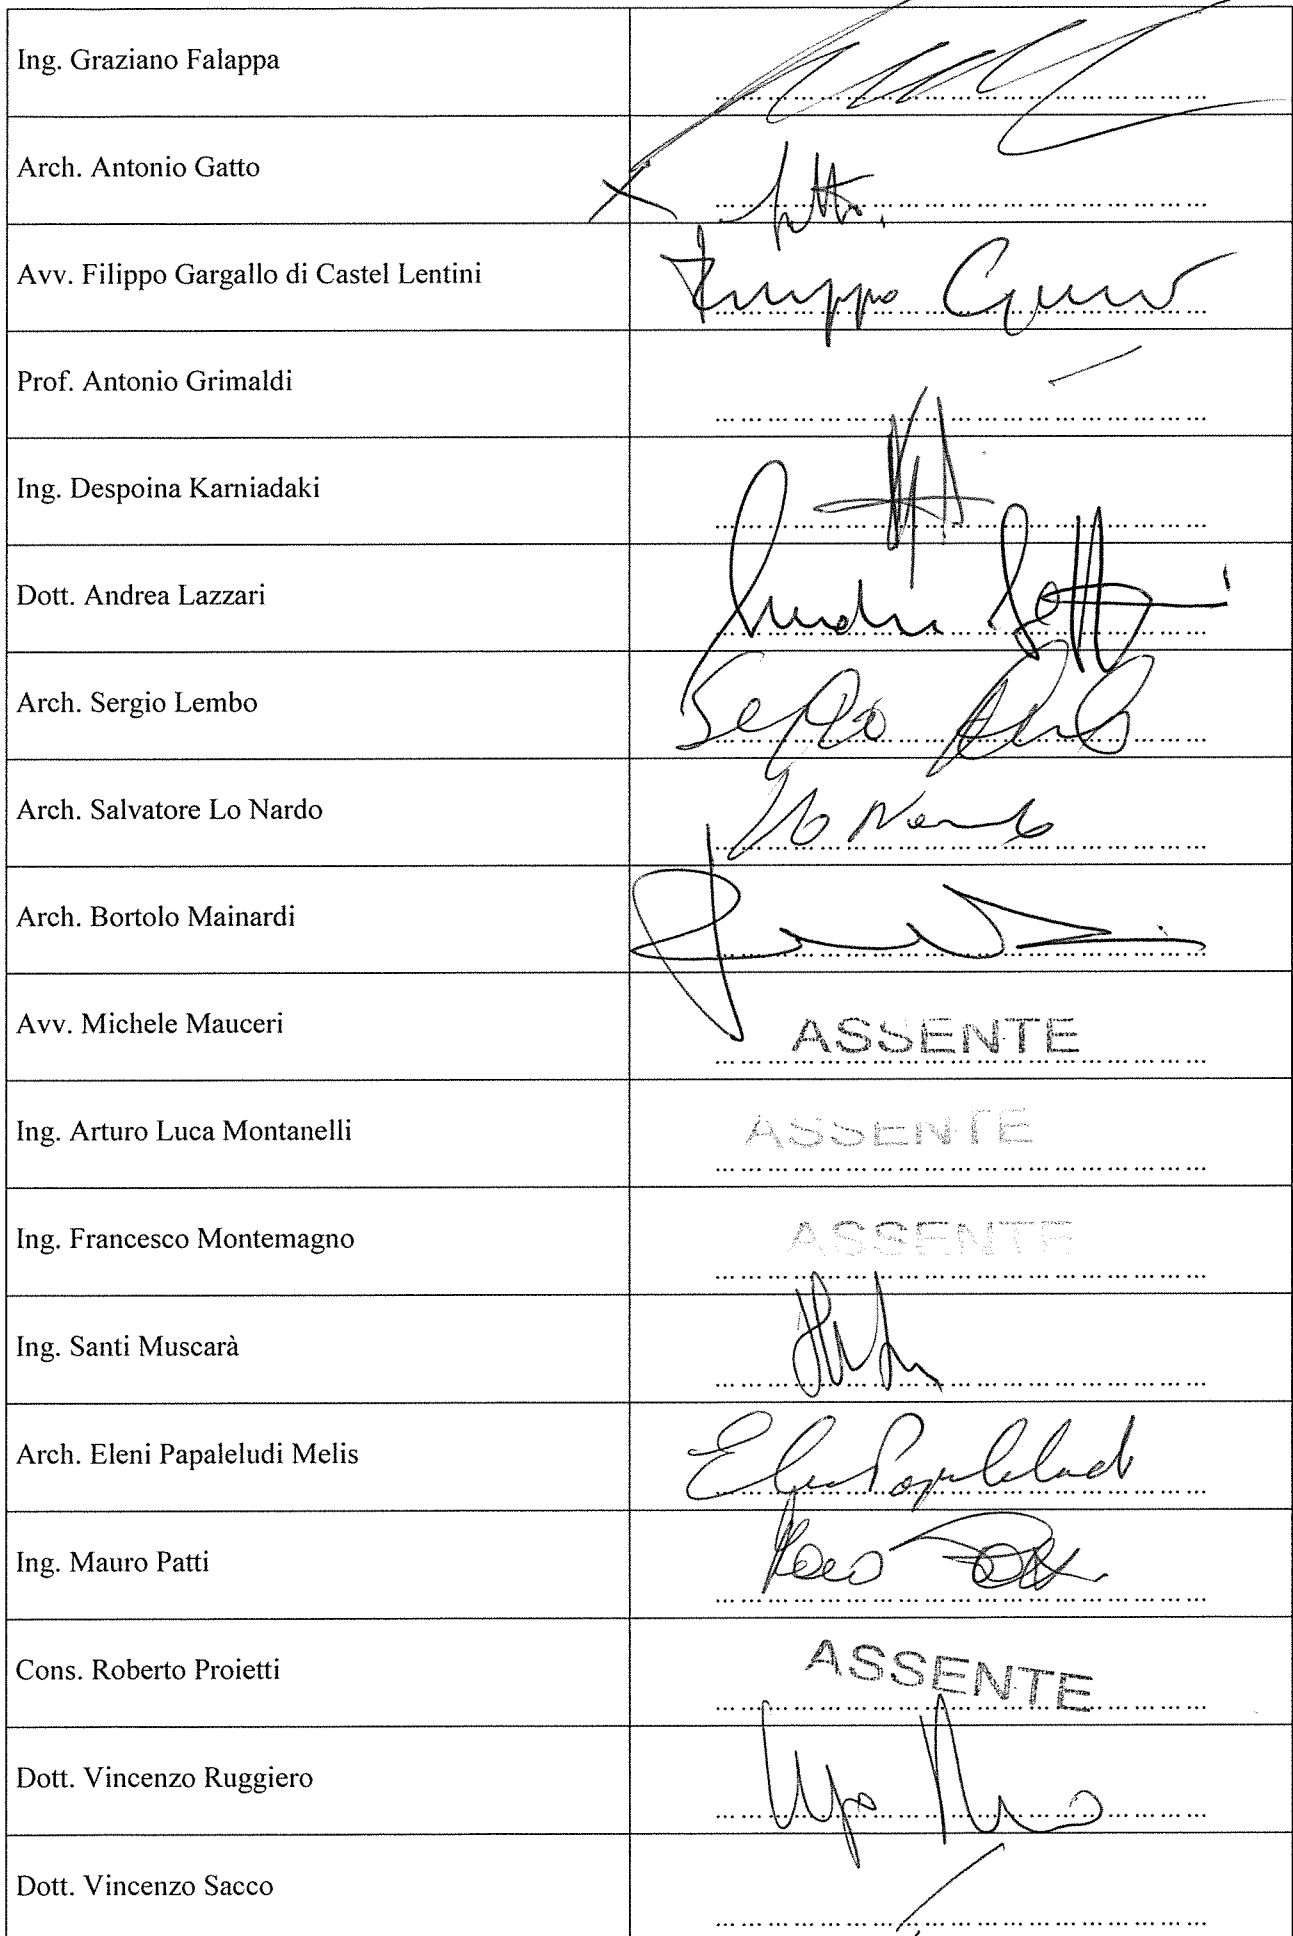 Ing. Graziano Falappa
Arch. Antonio Gatto
Avv. Filippo Gargallo di Castel Lentini
Filippo
Prof. Antonio Grimaldi
Ing. Despoina Karniadaki
Dott. Andrea Lazzari
Andrea
Arch. Sergio Lembo
Sergio
Arch. Salvatore Lo Nardo
Lo Nardo
Arch. Bortolo Mainardi
Avv. Michele Mauceri ASSENTE
Ing. Arturo Luca Montanelli ASSENTE
Ing. Francesco Montemagno ASSENTE
Ing. Santi Muscarà
Arch. Eleni Papaleludi Melis
Ing. Mauro Patti
Cons. Roberto Proietti ASSENTE
Dott. Vincenzo Ruggiero
Dott. Vincenzo Sacco